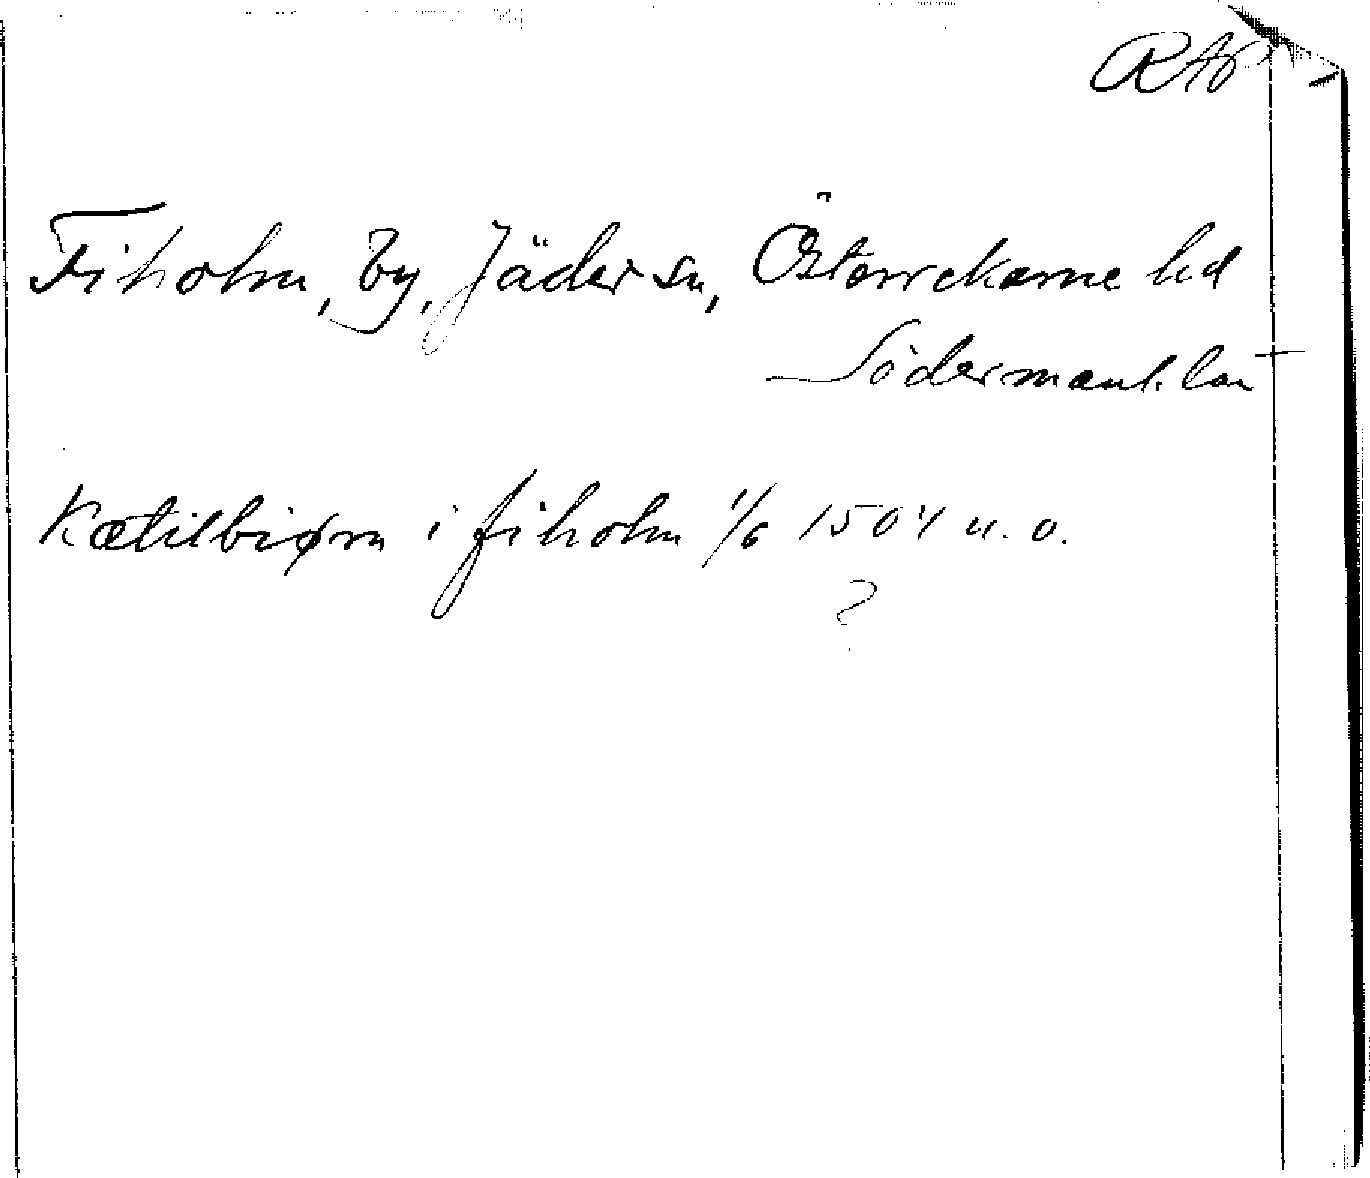 RAP
Fiholm, by, Jäder sn, Österrekarne hd
Södermanl. län
Kætilbiørn i fiholm 1/6 1504 u. o.
?